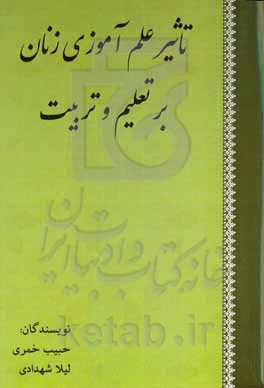 تاثیر علم آموزی زنان
بر تعلیم و تربیت
خانه کتاب و ادبیات ایران
ketab.ir
نویسندگان:
حبیب خمری
لیلا شهدادی